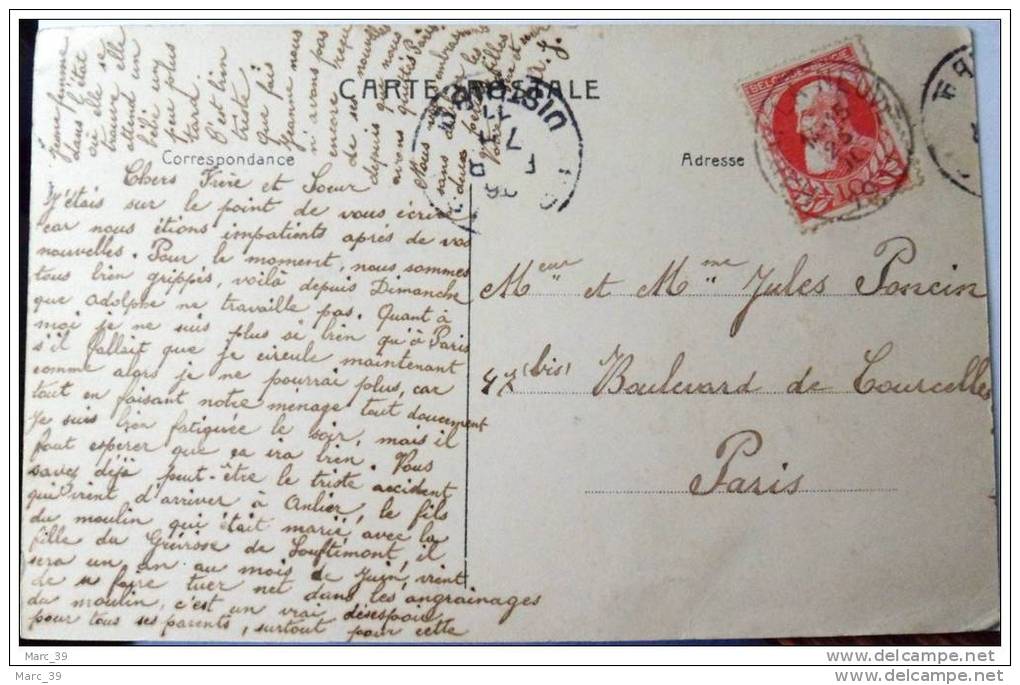 CARTE POSTALE
Correspondance
Adresse
Chers Frère et Soeur
J'étais sur le point de vous écrire
car nous étions impatients après de vos
nouvelles. Pour le moment, nous sommes
tous bien grippés, voilà depuis Dimanche
que Adolphe ne travaille pas. Quant à
moi je ne suis plus si bien qu'à Paris
s'il fallait que je circule maintenant
comme alors je ne pourrai plus, car
tout en faisant notre ménage tout doucement
je suis bien fatiguée le soir, mais il
faut esperer que ça ira bien. Vous
savez déjà peut-être le triste accident
qui vient d'arriver à Anlier, le fils
du moulin qui était marié avec la
fille du de il
sera un an au mois de Juin, vient
de se faire tuer net dans les angrainages
du moulin, c'est un vrai désespoir
pour tous ses parents, surtout pour cette
jeune femme
dans l'état
où elle se
trouve elle
attend un
bébé un
peu plus
tard
C'est bien
triste
que fais
Jeanne nous
n'avons pas
encore reçu
de nouvelles
depuis que nous
avons quittés Paris.
Nous vous embrassons
sans les
deux petites filles
Votre et
A. J.
Meur et Mme Jules Poncin
47 (bis) Boulevard de Courcelles
Paris
DISTRIB
Marc_39
Marc_39
www.delcampe.net
www.delcampe.net